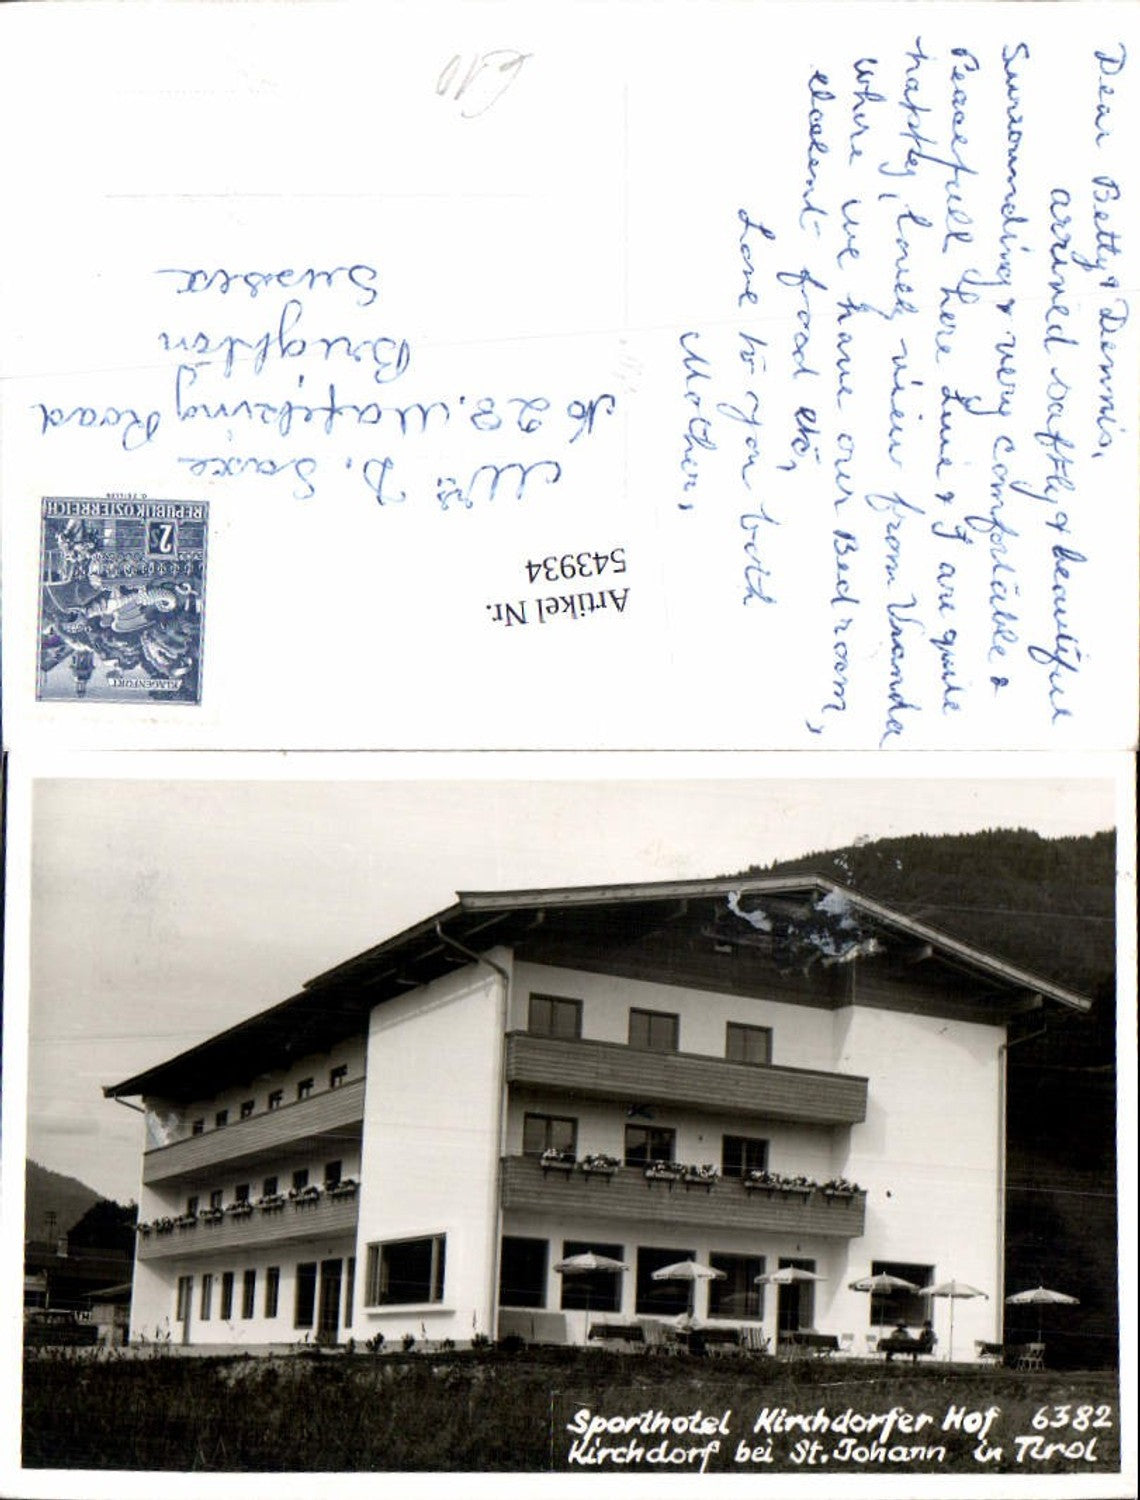 Dear Betty & Dennis,
arrived saftly & beautiful
Surrounding & very comfortable &
Peacefull here Line & I are quite
happy, lovely view from Vranda
where we have our Bedroom,
exelent food etc,
Love to you both
Mother,
Artikel Nr.
543934
KLAGENFURT
2S
REPUBLIK ÖSTERREICH
Mrs. D. Saxe
No 28. Mafeking Road
Brighton
Sussex
€10
Sporthotel Kirchdorfer Hof 6382
Kirchdorf bei St. Johann in Tirol